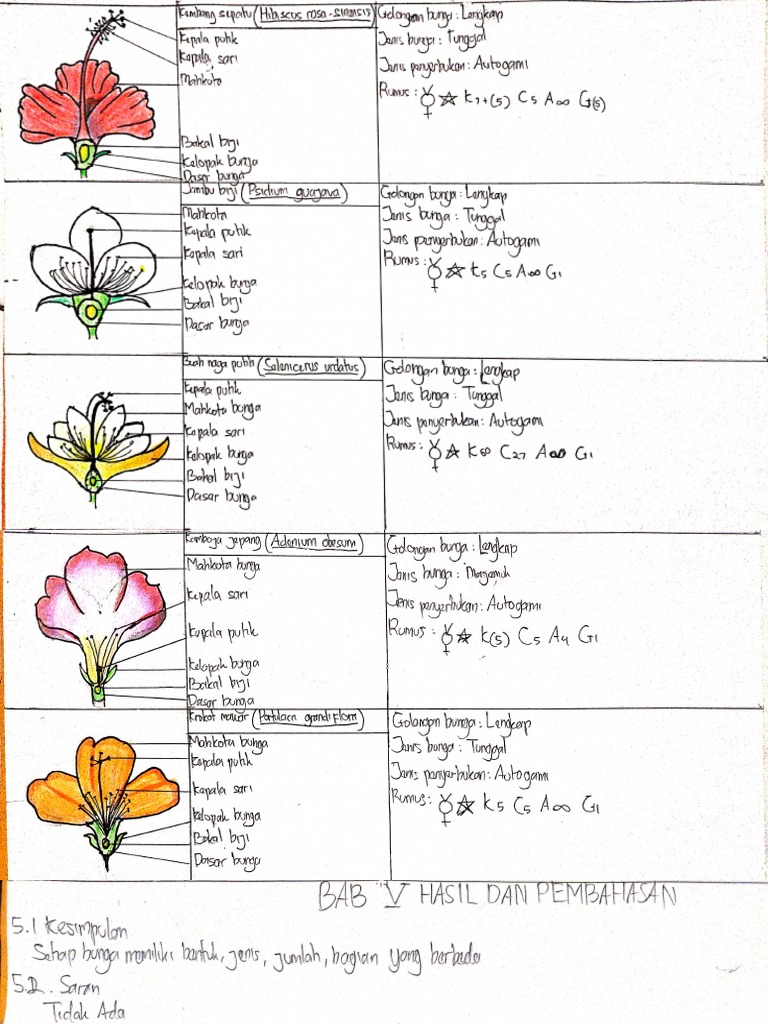 Kembang sepatu (Hibiscus rosa-sinensis)
Kepala putik
Kepala sari
Mahkota
Bakal biji
Kelopak bunga
Dasar bunga
Golongan bunga : Lengkap
Jenis bunga : Tunggal
Jenis penyerbukan : Autogami
Rumus : ⚥ ☆ K7+(5) C5 A∞ G(5)
Jambu biji (Psidium guajava)
Mahkota
Kepala putik
Kepala sari
Kelopak bunga
Bakal biji
Dasar bunga
Golongan bunga : Lengkap
Jenis bunga : Tunggal
Jenis penyerbukan : Autogami
Rumus : ⚥ ☆ K5 C5 A∞ G1
Buah naga putih (Selenicerus undatus)
Kepala putik
Mahkota bunga
Kepala sari
Kelopak bunga
Bakal biji
Dasar bunga
Golongan bunga : Lengkap
Jenis bunga : Tunggal
Jenis penyerbukan : Autogami
Rumus : ⚥ ☆ K∞ C27 A∞ G1
Kamboja jepang (Adenium obesum)
Mahkota bunga
Kepala sari
Kepala putik
Kelopak bunga
Bakal biji
Dasar bunga
Golongan bunga : Lengkap
Jenis bunga : Majemuk
Jenis penyerbukan : Autogami
Rumus : ⚥ ☆ K(5) C5 A4 G1
Krokot mawar (Portulaca grandiflora)
Mahkota bunga
Kepala putik
Kepala sari
Kelopak bunga
Bakal biji
Dasar bunga
Golongan bunga : Lengkap
Jenis bunga : Tunggal
Jenis penyerbukan : Autogami
Rumus : ⚥ ☆ K5 C5 A∞ G1
BAB V HASIL DAN PEMBAHASAN
5.1 Kesimpulan
Setiap bunga memiliki bentuk, jenis, jumlah, bagian yang berbeda
5.2. Saran
Tidak Ada